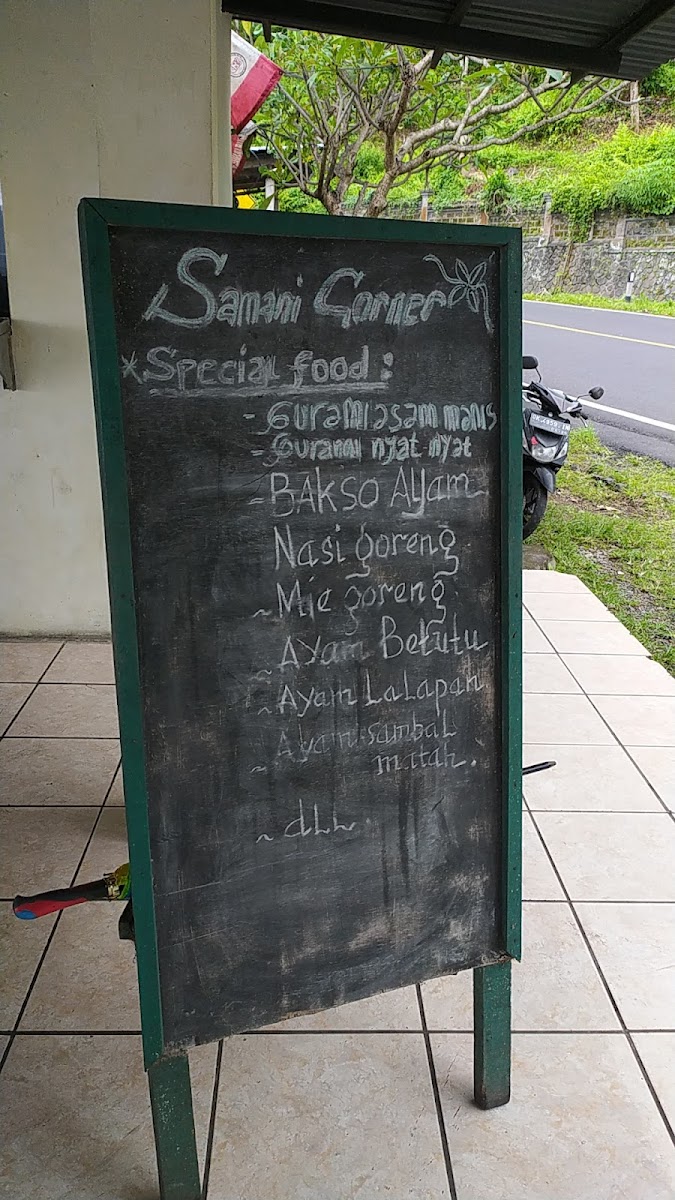 Samani Corner
*Special food:
- Gurami asam manis
- Gurami nyat nyat
- BAKSO Ayam
Nasi goreng
~ Mie goreng
~ Ayam Betutu
~ Ayam Lalapan
~ Ayam sambal
matah.
~ dLL.